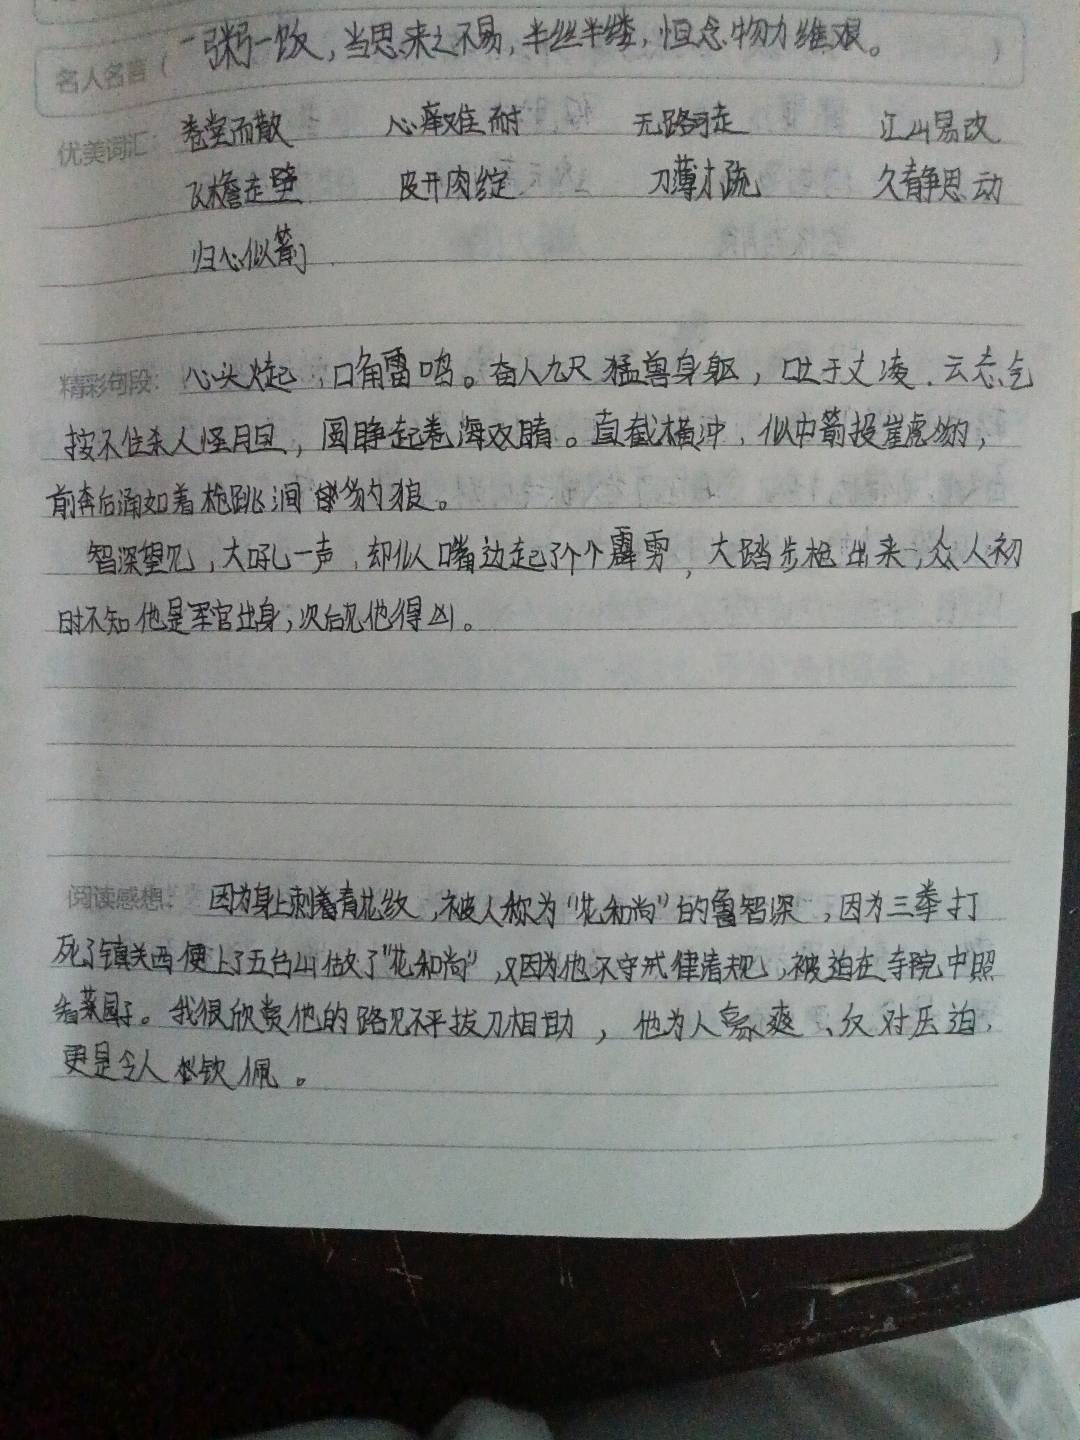 一粥一饭，当思来之不易，半丝半缕，恒念物力维艰。
名人名言（ ）
优美词汇： 卷堂而散 心痒难耐 无路可走 江山易改
飞檐走壁 皮开肉绽 刀薄才疏 久静思动
归心似箭
精彩句段： 心头火起，口角雷鸣。奋八九尺猛兽身躯，吐于丈凌云志气
按不住杀人怪胆，圆睁起卷海双睛。直截横冲，似中箭投崖虎豹，
前奔后涌如着枪跳涧豺狼。
智深望见，大吼一声，却似嘴边起了个霹雳，大踏步抢出来，众人初
时不知他是军官出身，次后见他得凶。
阅读感想： 因为身上刺着青花纹，被人称为“花和尚”的鲁智深，因为三拳打
死了镇关西便上了五台山做了“花和尚”，又因为他不守戒律清规，被迫在寺院中照
看菜园子。我很欣赏他的路见不平拔刀相助，他为人豪爽、反对压迫，
更是令人钦佩。